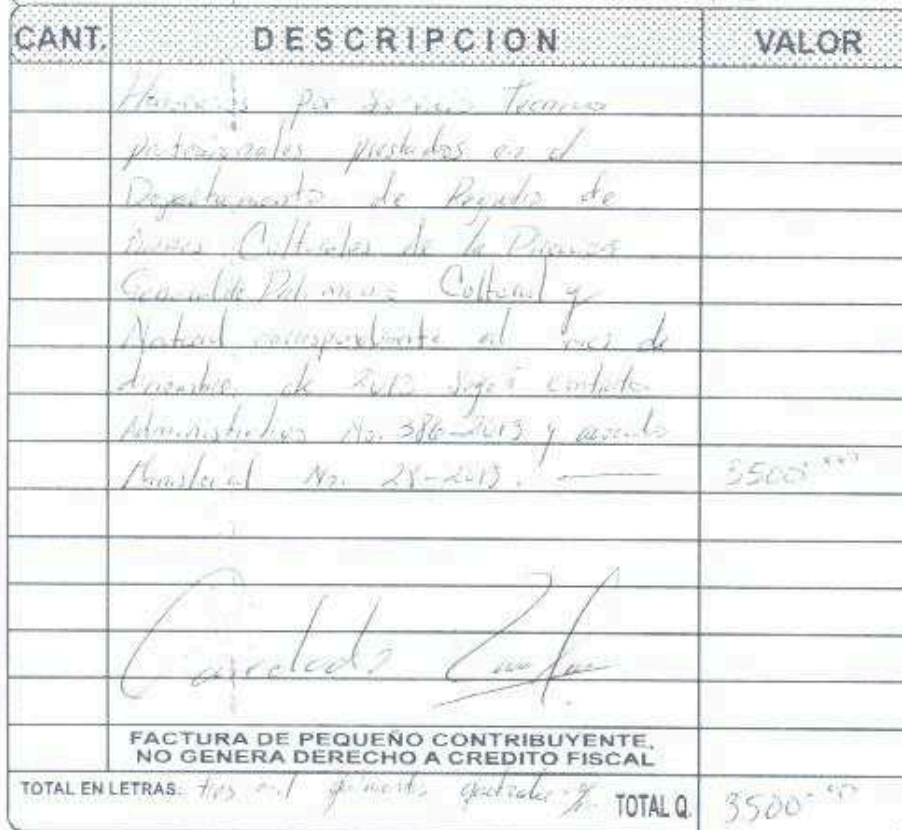 CANT. DESCRIPCION VALOR
Honorarios por Servicios Técnicos
profesionales prestados en el
Departamento de Registro de
Bienes Culturales de la Dirección
General de Patrimonio Cultural y
Natural correspondiente al mes de
diciembre de 2013 según contrato
Administrativo No. 386-2013 y acuerdo
Ministerial No. 28-2013. 3500
Cancelado
FACTURA DE PEQUEÑO CONTRIBUYENTE,
NO GENERA DERECHO A CREDITO FISCAL
TOTAL EN LETRAS: tres mil quinientos quetzales TOTAL Q. 3500